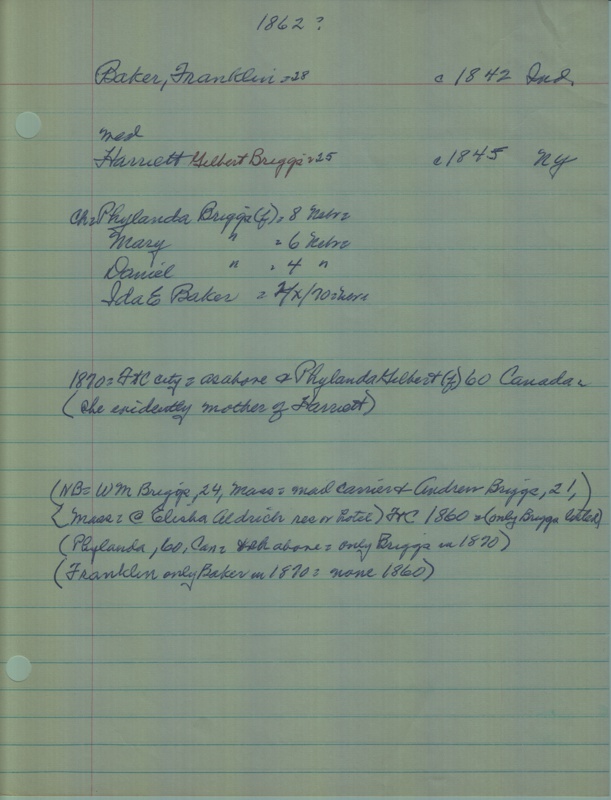 1862?
Baker, Franklin = 28 c 1842 Ind.
md
Harriett Gilbert Briggs = 25 c 1845 NY
Ch = Phylanda Briggs (f) = 8 Nebr =
Mary " = 6 Nebr =
Daniel " = 4 "
Ida E Baker = 2/x/70 = Nebr
1870 = city = as above & Phylanda Gilbert (f) 60 Canada =
(she evidently mother of Harriett)
(NB = Wm Briggs, 24, Mass = mail carrier & Andrew Briggs, 21,)
(Mass = @ Elisha Aldrich res or Hotel) 1860 = (only Briggs listed)
(Phylanda, 60, Can = above = only Briggs in 1870)
(Franklin only Baker in 1870 = none 1860)